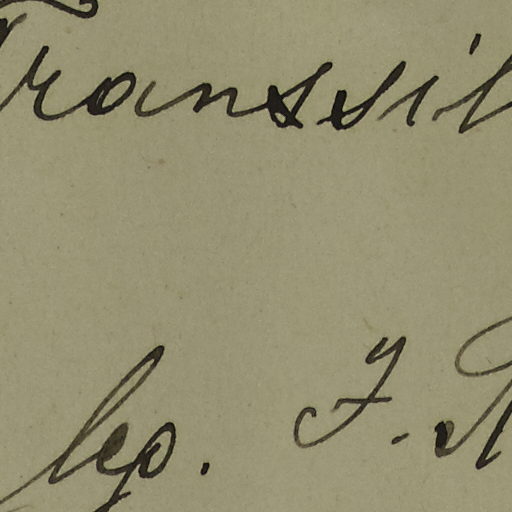 Transsil
leg. J.